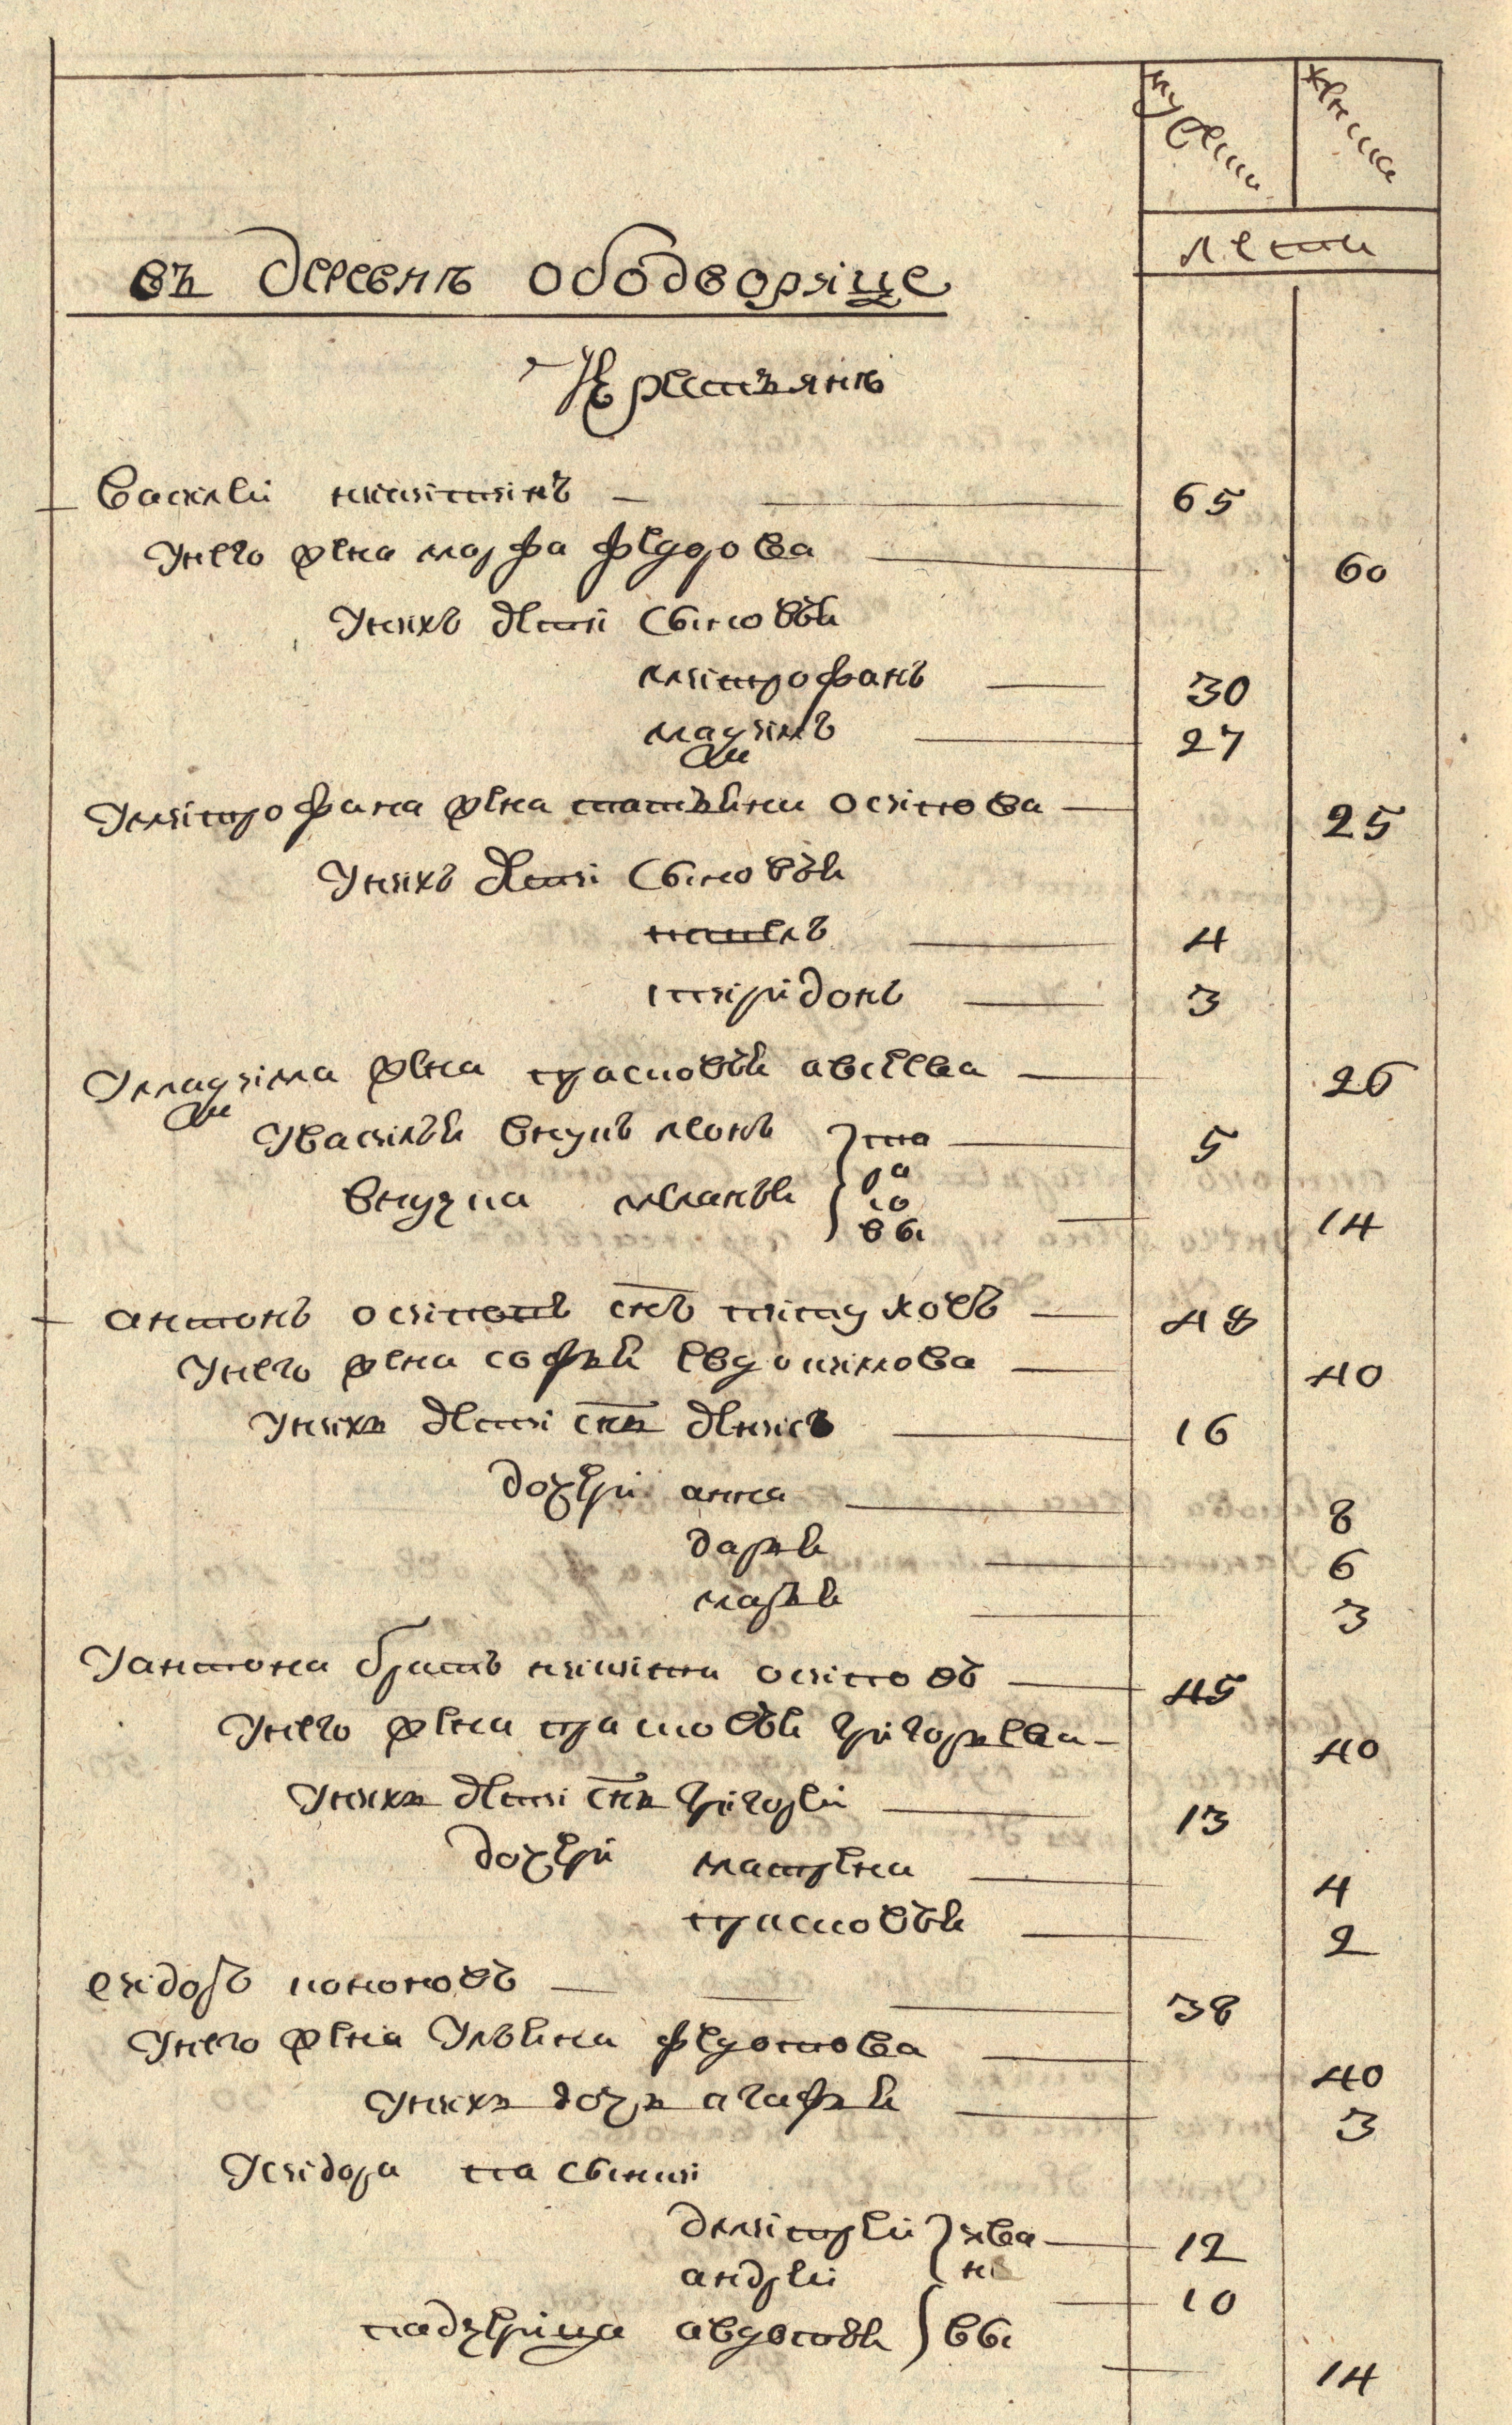 мужеска
женска
лета
въ деревнѣ ободворище
Крестьянѣ
Василей никитинъ — 65
Унего жена марфа федорова — 60
Унихъ дети сыновьи
митрофанъ — 30
мадимъ — 27
Умитрофана жена татьяна осипова — 25
Унихъ дети сыновьи
павелъ — 4
спиридонъ — 3
Умадима жена прасковьи авсеева — 26
Увасилья внукъ леонъ — 5
внучка меланьи — 14
антонъ осиповъ снъ питуховъ — 48
Унего жена софьи Евдокимова — 40
Унихъ дети снъ денисъ — 16
дочери анна — 8
дарьи — 6
марьи — 3
Уантона братъ никита осиповъ — 45
Унего жена прасковьи григорьева — 40
Унихъ дети снъ григорей — 13
дочери матрена — 4
прасковьи — 2
сидоръ кононовъ — 38
Унего жена Ульяна федотова — 40
Унихъ дочь агафьи — 3
Усидора пасынки
дмитрей — 12
андрей — 10
падчерица авдотьи — 14